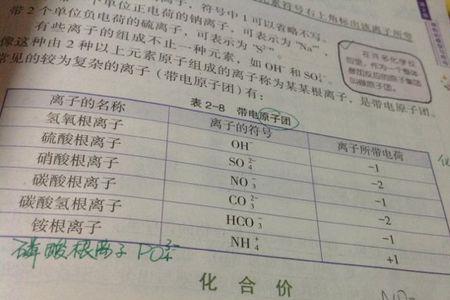 素符号右上角标出该离子所带
个单位正电荷的钠离子，符号中1可以省略不写，
带2个单位负电荷的硫离子，可表示为"S²⁻"
有些离子的组成不止一种元素，如OH⁻和SO₄²⁻
像这种由2种以上元素原子组成的离子称为某某根离子，是带电原子团。
常见的较为复杂的离子（带电原子团）有：
在许多化学反
应里，作为一个整体
参加反应的原子集团
叫做原子团。
表2-8 带电原子团
离子的名称 离子的符号 离子所带电荷
氢氧根离子 OH⁻ -1
硫酸根离子 SO₄²⁻ -2
硝酸根离子 NO₃⁻ -1
碳酸根离子 CO₃²⁻ -2
碳酸氢根离子 HCO₃⁻ -1
铵根离子 NH₄⁺ +1
磷酸根离子 PO₄³⁻
化合价